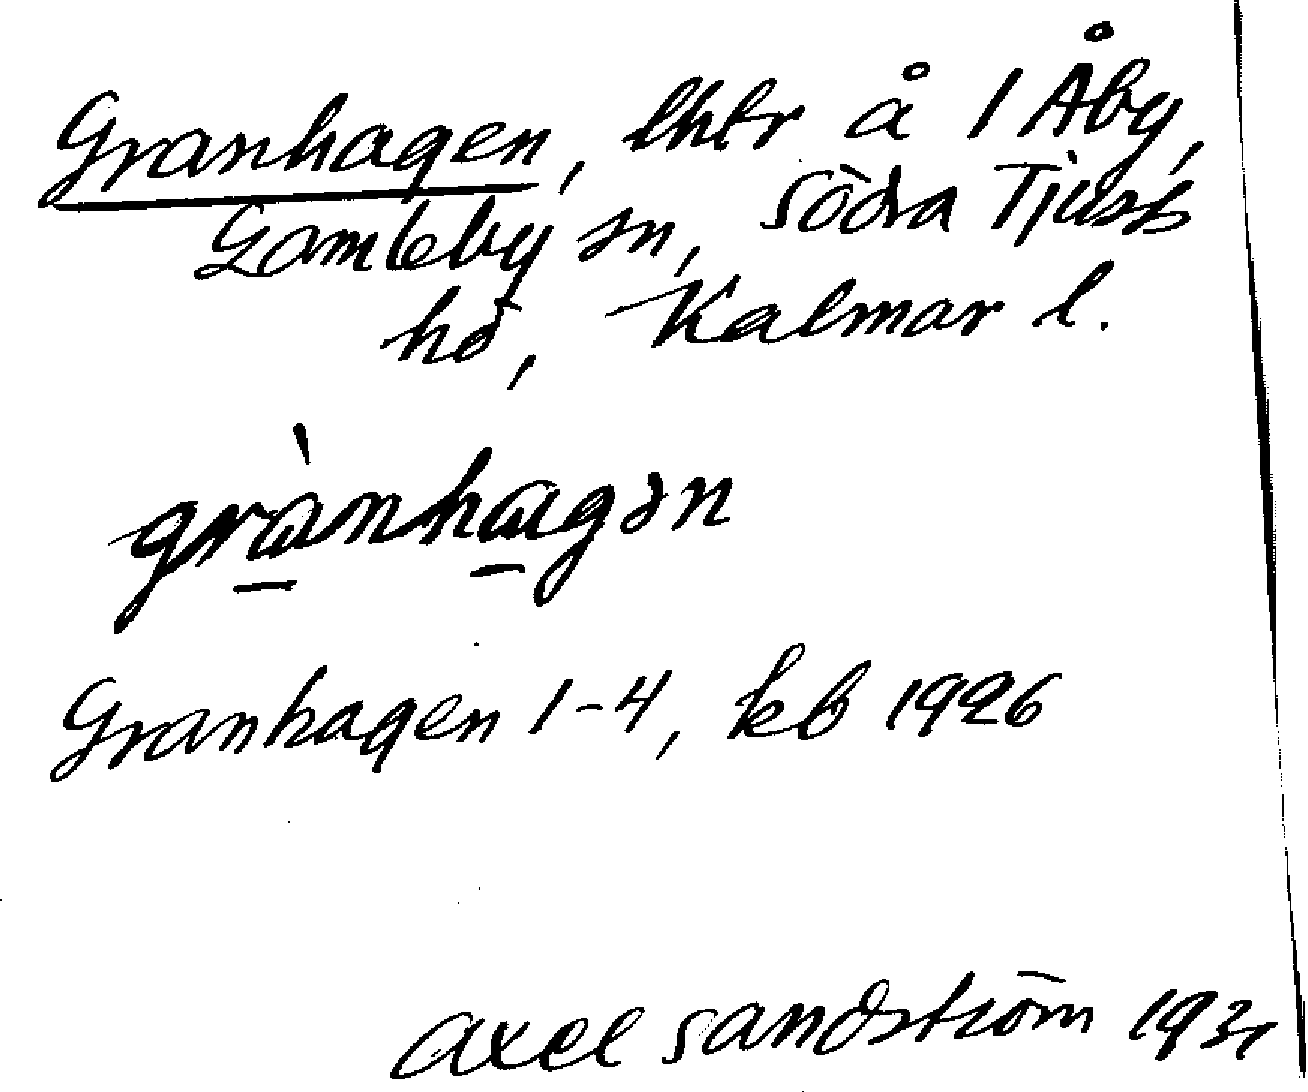 Granhagen, lhtr å 1 Åby,
Gamleby sn, Södra Tjusts
hd, Kalmar l.
grànhagən
Granhagen 1-4, kb 1926
Axel Sandström 1931